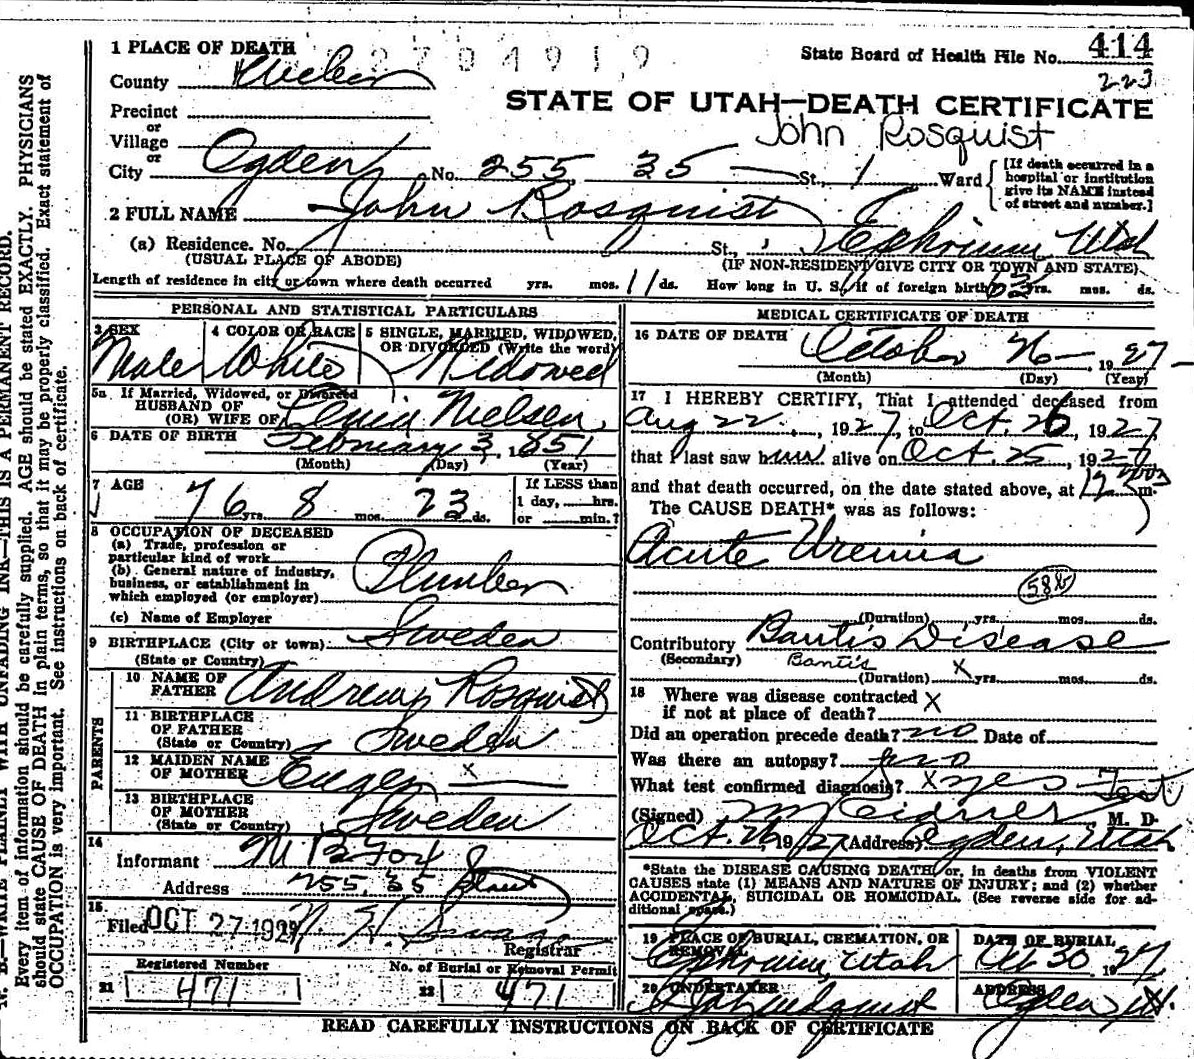 1 PLACE OF DEATH
2704919
State Board of Health File No. 414
County Weber
223
Precinct
STATE OF UTAH—DEATH CERTIFICATE
or
Village
John Rosquist
or
City Ogden No. 255 35 St., 1 Ward
[If death occurred in a hospital or institution give its NAME instead of street and number.]
2 FULL NAME John Rosquist
(a) Residence. No. St., Ephriam Utah
(USUAL PLACE OF ABODE) (IF NON-RESIDENT GIVE CITY OR TOWN AND STATE)
Length of residence in city or town where death occurred yrs. mos. 11 ds. How long in U. S., if of foreign birth? 63 yrs. mos. ds.
PERSONAL AND STATISTICAL PARTICULARS
3 SEX 4 COLOR OR RACE 5 SINGLE, MARRIED, WIDOWED, OR DIVORCED (Write the word)
Male White Widowed
5a If Married, Widowed, or Divorced
HUSBAND OF
(OR) WIFE OF Nielsen
6 DATE OF BIRTH February 3, 1851
(Month) (Day) (Year)
7 AGE 76 yrs. 8 mos. 23 ds.
If LESS than
1 day, hrs.
or min.?
8 OCCUPATION OF DECEASED
(a) Trade, profession or
particular kind of work
Plumber
(b) General nature of industry,
business, or establishment in
which employed (or employer)
(c) Name of Employer
9 BIRTHPLACE (City or town) Sweden
(State or Country)
PARENTS
10 NAME OF
FATHER Andrew Rosquist
11 BIRTHPLACE
OF FATHER
(State or Country) Sweden
12 MAIDEN NAME
OF MOTHER x
13 BIRTHPLACE
OF MOTHER
(State or Country) Sweden
14
Informant M B Fox
Address 255, 35 Street
15
Filed OCT 27 192
Registrar
Registered Number No. of Burial or Removal Permit
21 471 22 471
MEDICAL CERTIFICATE OF DEATH
16 DATE OF DEATH October 26 1927
(Month) (Day) (Year)
17 I HEREBY CERTIFY, That I attended deceased from
Aug 22, 1927, to Oct. 26, 1927
that I last saw him alive on Oct. 25, 1927
and that death occurred, on the date stated above, at 12 noon m.
The CAUSE DEATH* was as follows:
Acute Uremia
(Duration) yrs. mos. ds.
Contributory Bantis Disease
(Secondary) Bantis
(Duration) x yrs. mos. ds.
18 Where was disease contracted
if not at place of death? X
Did an operation precede death? no Date of
Was there an autopsy? no
What test confirmed diagnosis? x yes Test
(Signed) M. D.
Oct. 26 1927 (Address) Ogden, Utah
*State the DISEASE CAUSING DEATH, or, in deaths from VIOLENT
CAUSES state (1) MEANS AND NATURE OF INJURY; and (2) whether
ACCIDENTAL, SUICIDAL OR HOMICIDAL. (See reverse side for ad-
ditional space.)
19 PLACE OF BURIAL, CREMATION, OR REMOVAL DATE OF BURIAL
Ephraim, Utah Oct 30 1927
20 UNDERTAKER ADDRESS
Ogden, Ut.
READ CAREFULLY INSTRUCTIONS ON BACK OF CERTIFICATE
N. B.—WRITE PLAINLY WITH UNFADING INK—THIS IS A PERMANENT RECORD.
Every item of information should be carefully supplied. AGE should be stated EXACTLY. PHYSICIANS
should state CAUSE OF DEATH in plain terms, so that it may be properly classified. Exact statement of
OCCUPATION is very important. See instructions on back of certificate.